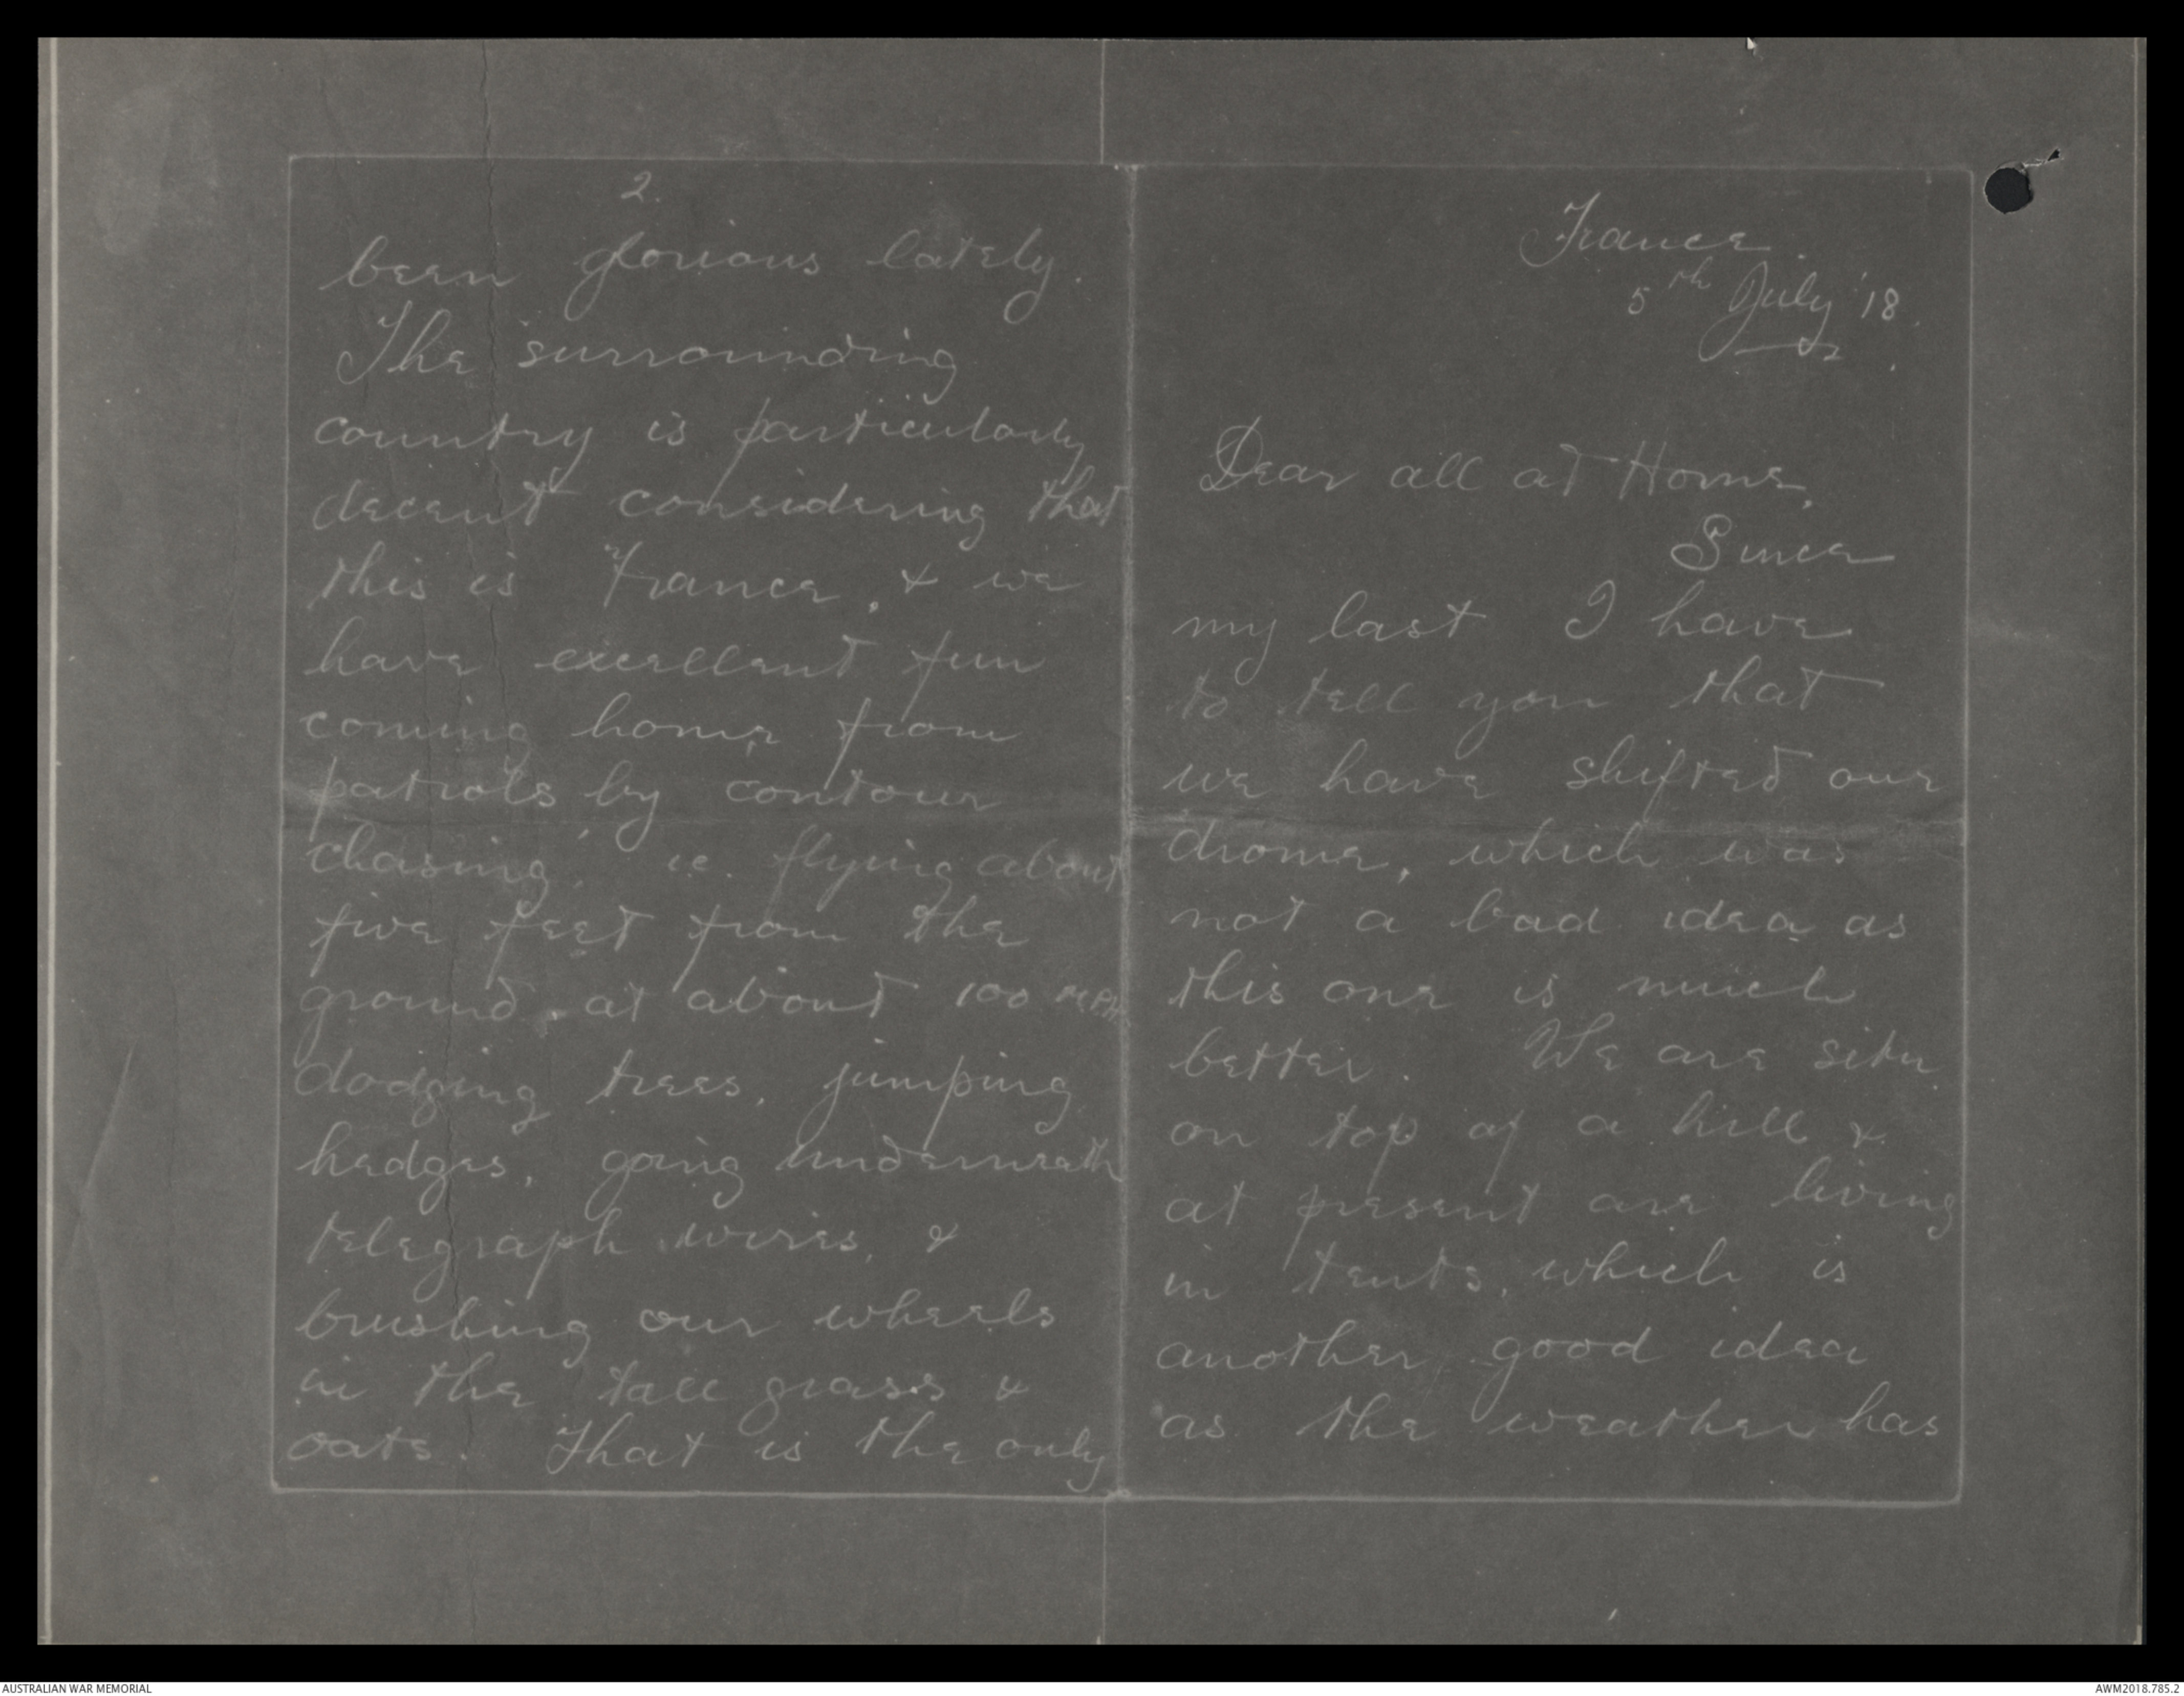 France.
5th July '18.
Dear all at Home,
Since
my last I have
to tell you that
we have shifted our
drome, which was
not a bad idea as
this one is much
better. We are situ
on top of a hill &
at present are living
in tents, which is
another good idea
as the weather has
2.
been glorious lately.
The surrounding
country is particularly
decent considering that
this is France, & we
have excellent fun
coming home from
patrols by contour
chasing, ie. flying about
five feet from the
ground, at about 100 MPH
dodging trees, jumping
hedges, going underneath
telegraph wires, &
brushing our wheels
in the tall grass &
oats. That is the only
AUSTRALIAN WAR MEMORIAL
AWM2018.785.2